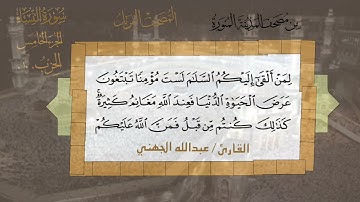 سورة النساء
الجزء الخامس
الحزب
المصحف المرتل
من مصحف المدينة المنورة
لِمَنْ أَلْقَىٰٓ إِلَيْكُمُ ٱلسَّلَـٰمَ لَسْتَ مُؤْمِنًا تَبْتَغُونَ
عَرَضَ ٱلْحَيَوٰةِ ٱلدُّنْيَا فَعِندَ ٱللَّهِ مَغَانِمُ كَثِيرَةٌ ۚ
كَذَٰلِكَ كُنتُم مِّن قَبْلُ فَمَنَّ ٱللَّهُ عَلَيْكُمْ
القارئ / عبدالله الجهني